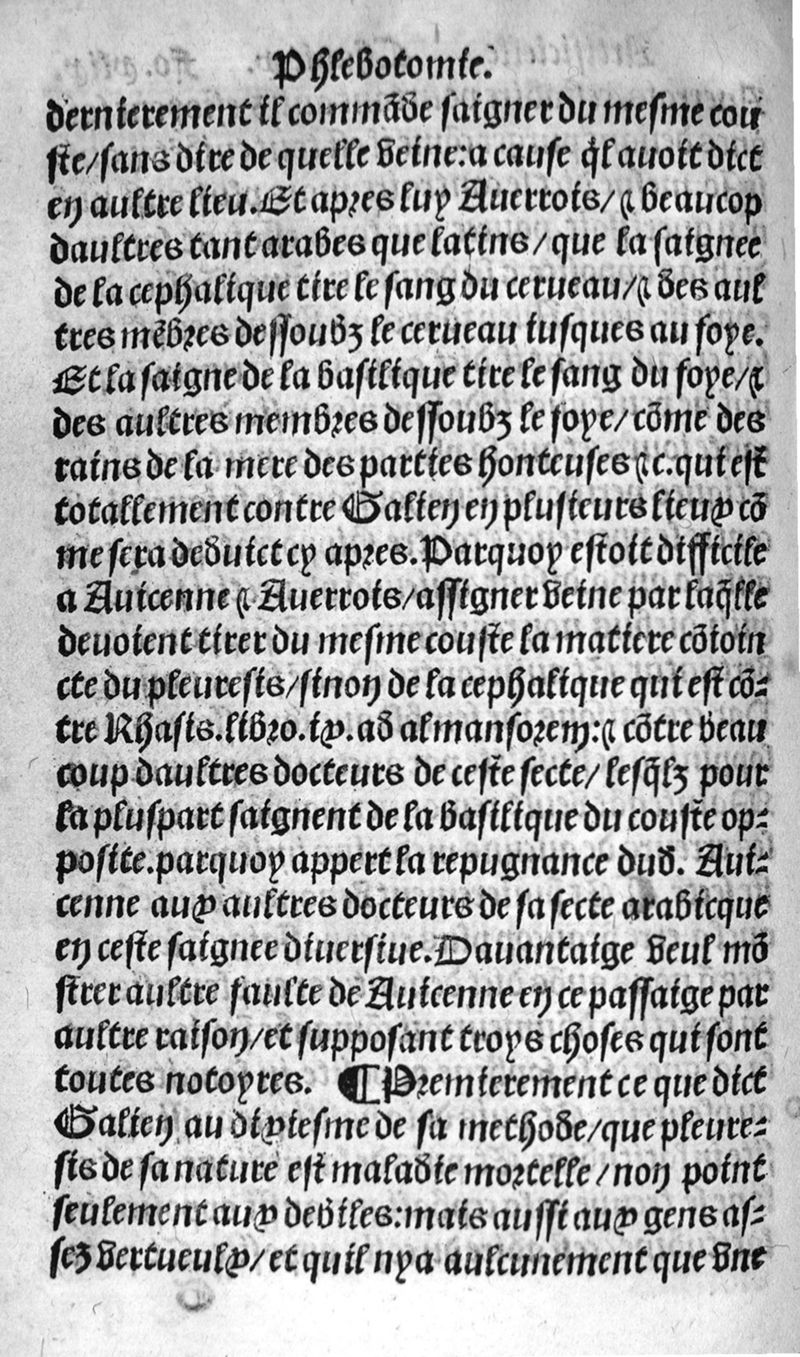 Phlebotomie.
dernierement il commāde saigner du mesme cou
ste/sans dire de quelle veine:a cause q̄l auoit dict
en aultre lieu.Et apres luy Auerrois/⁊ beaucop
daultres tant arabes que latins/que la saignee
de la cephalique tire le sang du cerueau/⁊ des aul
tres mēbres dessoubz le cerueau iusques au foye.
Et la saigne de la basilique tire le sang du foye/⁊
des aultres membres dessoubz le foye/cōme des
rains de la mere des parties honteuses ⁊c.qui est
totallement contre Galien en plusieurs lieux cō
me sera deduict cy apres.Parquoy estoit difficile
a Auicenne ⁊ Auerrois/assigner veine par laq̄lle
deuoient tirer du mesme couste la matiere cōioin
cte du pleuresis/sinon de la cephalique qui est cō-
tre Rhasis.libro.ix.ad almansorem:⁊ cōtre beau
coup daultres docteurs de ceste secte/lesq̄lz pour
la pluspart saignent de la basilique du couste op-
posite.parquoy appert la repugnance dud. Aui-
cenne aux aultres docteurs de sa secte arabicque
en ceste saignee diuersiue.Dauantaige veul mō
strer aultre faulte de Auicenne en ce passaige par
aultre raison/et supposant troys choses qui sont
toutes notoyres. ¶Premierement ce que dict
Galien au dixiesme de sa methode/que pleure-
sis de sa nature est maladie mortelle/non point
seulement aux debiles:mais aussi aux gens as-
sez vertueulx/et quil nya aulcunement que vne